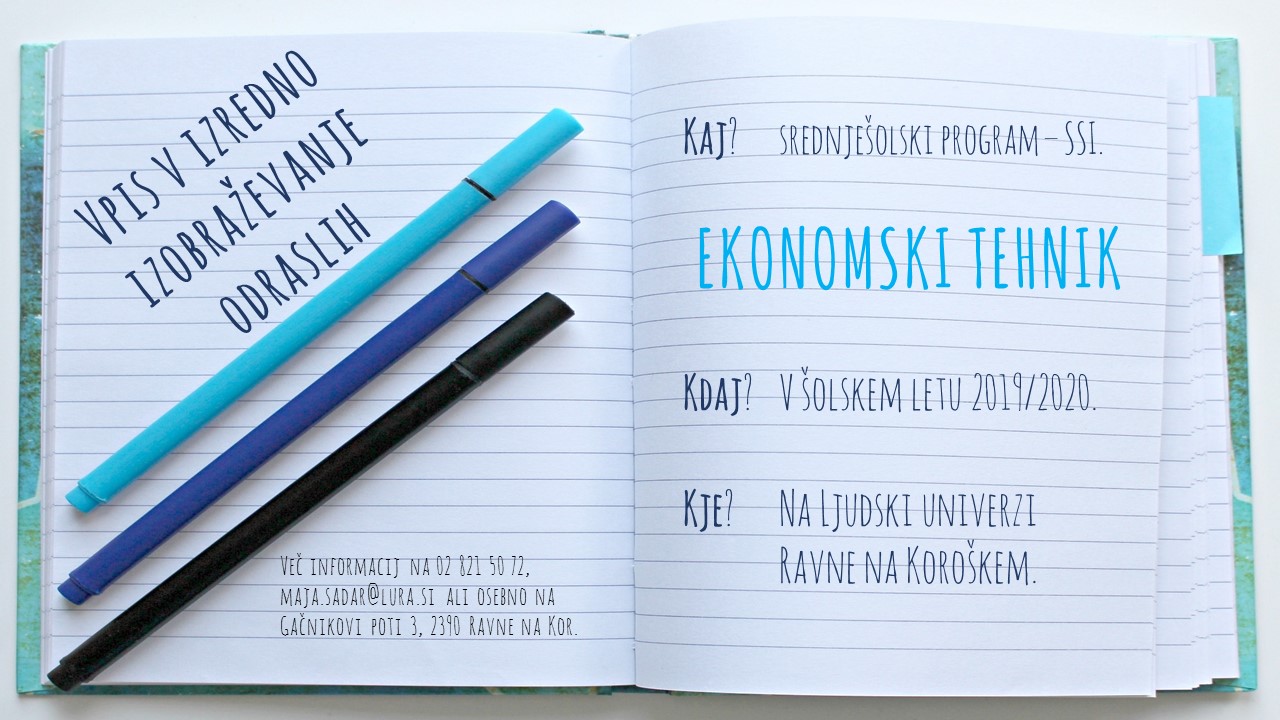 VPIS V IZREDNO
IZOBRAŽEVANJE
ODRASLIH
VEČ INFORMACIJ NA 02 821 50 72,
MAJA.SADAR@LURA.SI ALI OSEBNO NA
GAČNIKOVI POTI 3, 2390 RAVNE NA KOR.
KAJ? SREDNJEŠOLSKI PROGRAM – SSI.
EKONOMSKI TEHNIK
KDAJ? V ŠOLSKEM LETU 2019/2020.
KJE? NA LJUDSKI UNIVERZI
RAVNE NA KOROŠKEM.